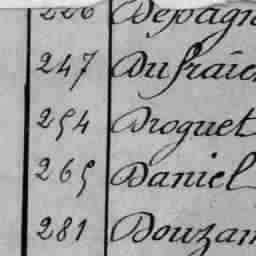 226 Depagn
247 Dufraîe
254 Droguet
265 Daniel
281 Douzan